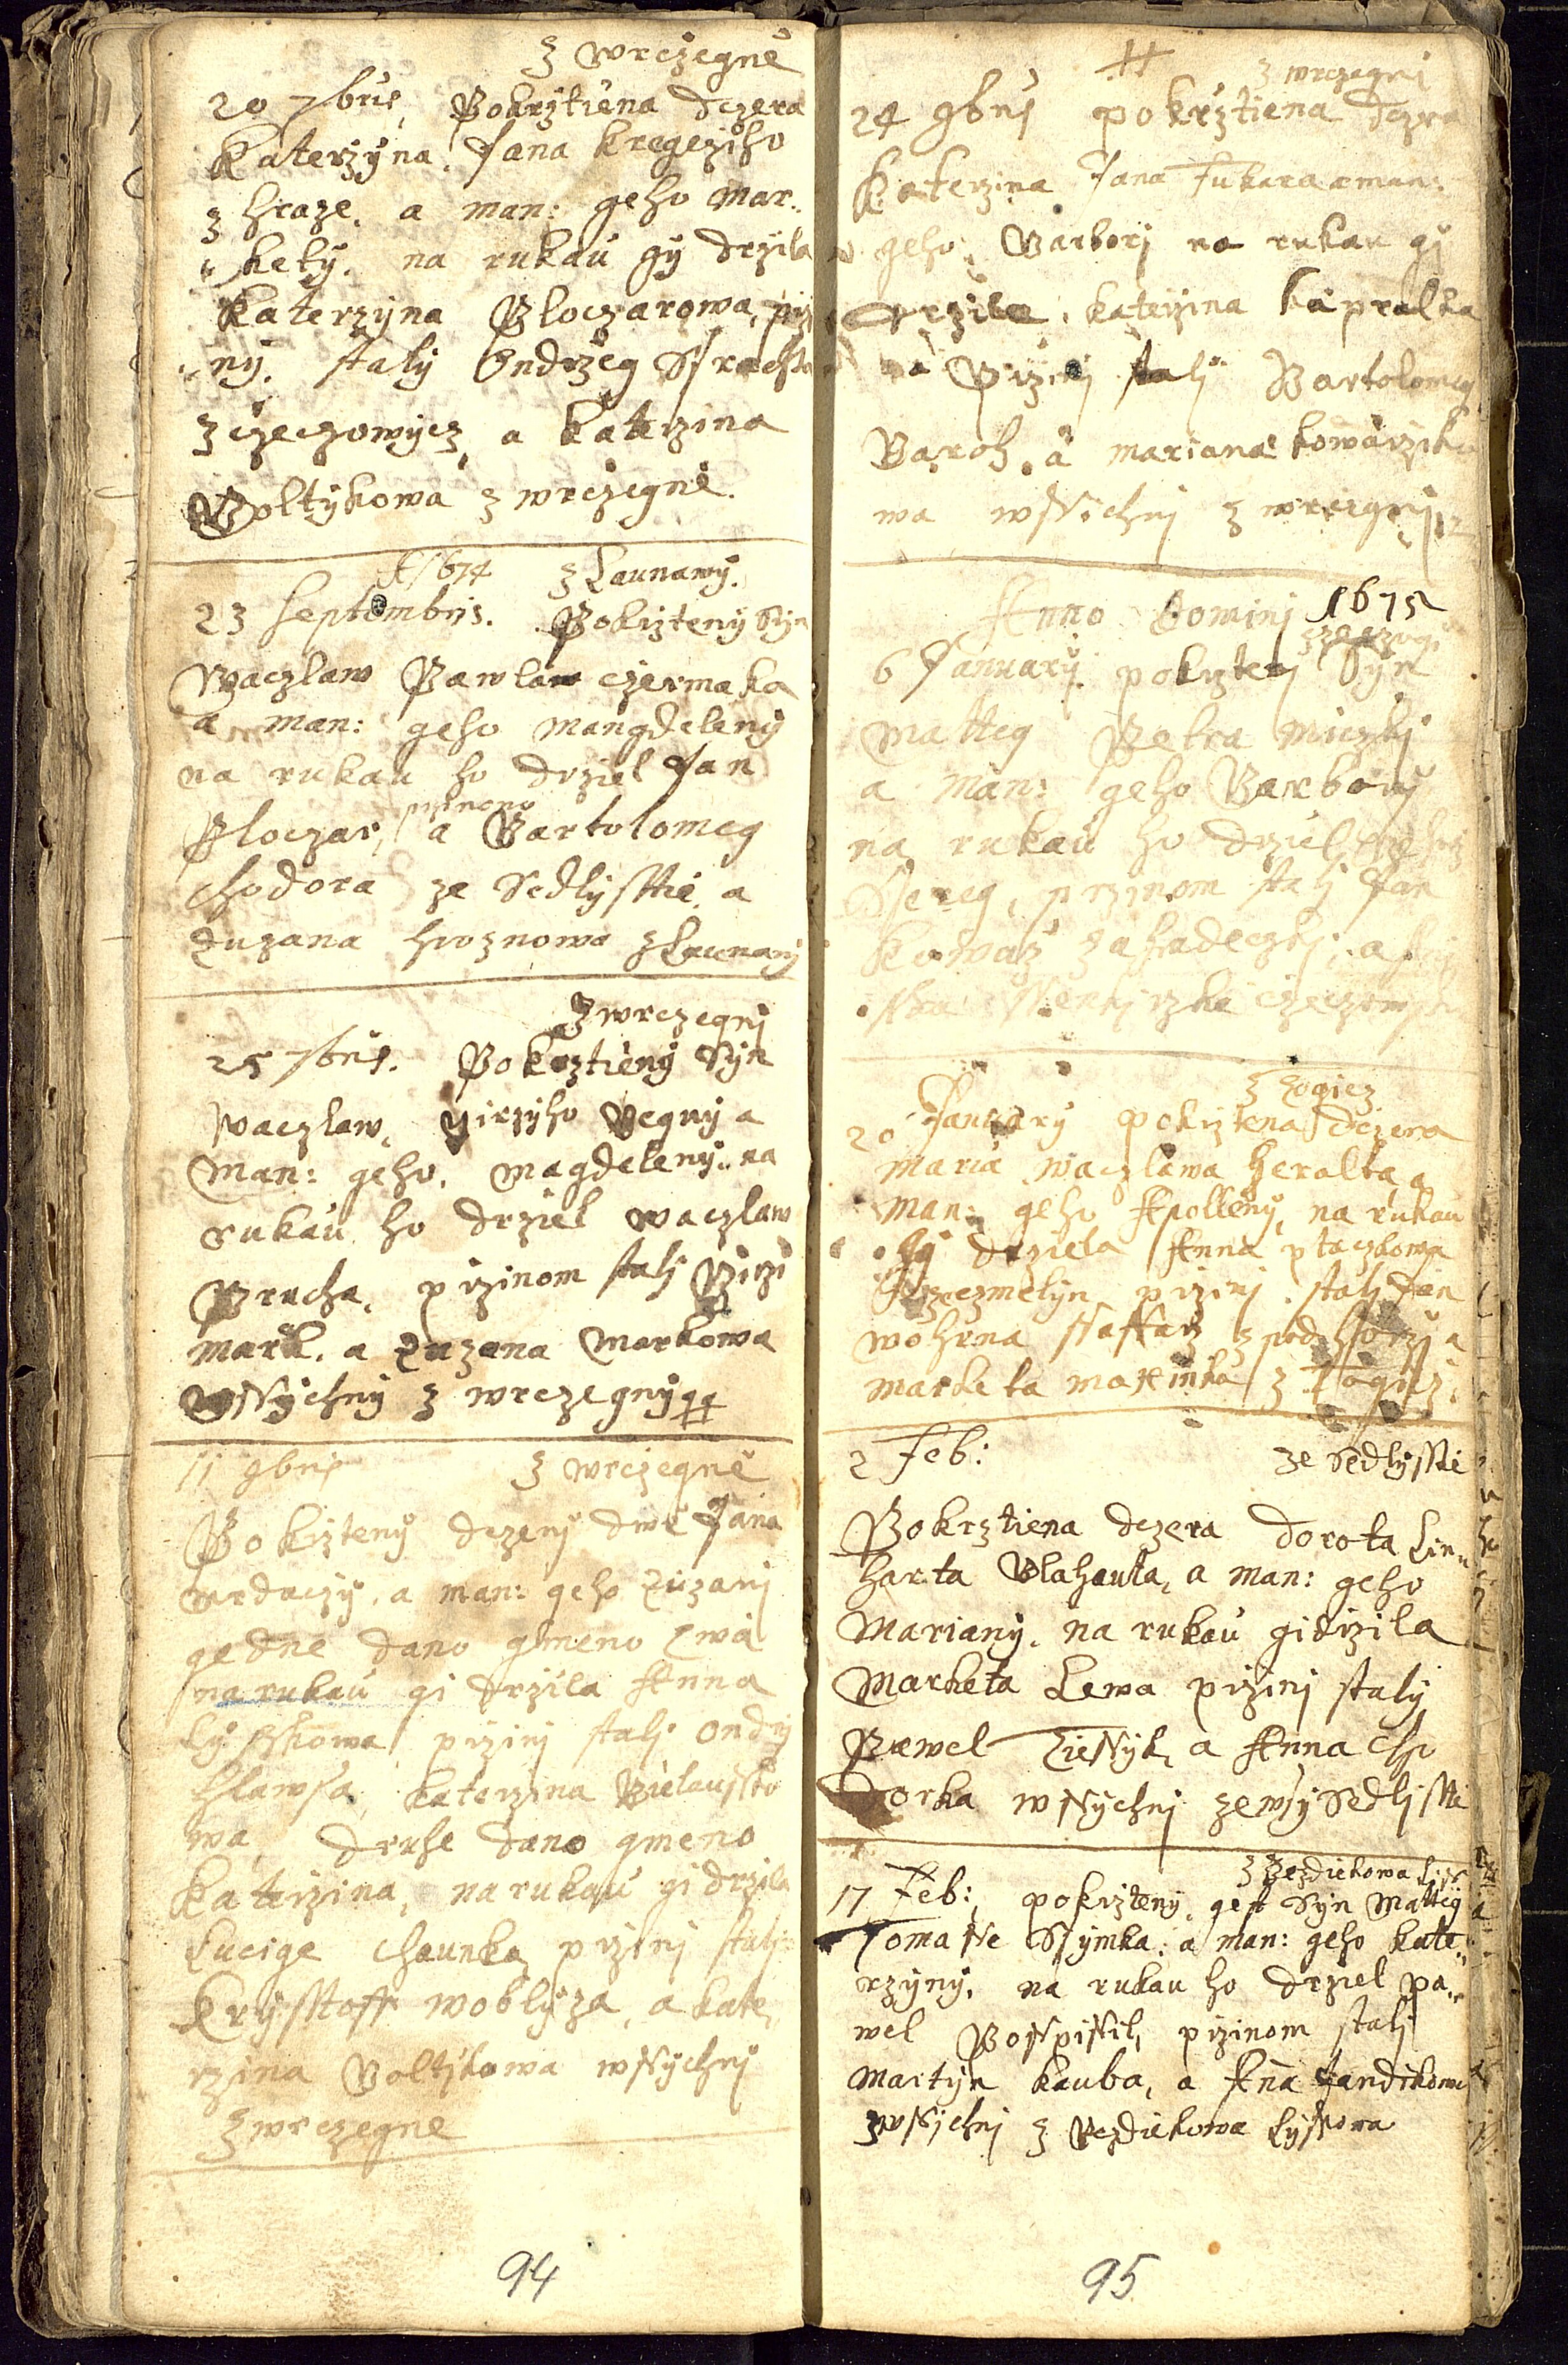 z wrczegně
20 7bris, Pokrztiena dczera
Katerzÿna, Jana kregcziho
z hraze, a man: geho Mar:
kety. na rukau gÿ drzila
Katerzÿna Ploczarowa, przi
nÿ. staly Ondrzeg
z czeczowÿcz, a Katerzina
Woltÿkowa z wrczegně.
A 1674 z Launawÿ.
23 Septembris. Pokrzteny Syn
Waczlaw Pawla czermaka
a man: geho Mangdelenÿ
na rukau ho drziel Jan
Ploczar, przinom a Bartolomeg
chodora ze Sedlÿsstie, a
Zuzana hroznowa z Launawÿ
z wrczegni
25 7bris. Pokrztienÿ Sÿn
Waczlaw, Girzÿho Wegnÿ a
Man: geho, Magdelenÿ, na
rukau ho drziel Waczlaw
Brucha, przinom stali Girzi
Mark. a Zuzana Markowa
wssÿchnÿ z wrczegnÿ
11 9bris z wrczegně
Pokrztenÿ dczerÿ dwě Jana
a man: geho Zuzani
gedne dano gmeno Ewa
na rukau gi drzila Anna
Lÿsskowa przini stali Ondrzÿ
hlawsa, Katerzina
wa, druhe dano gmeno
Katerzina, na rukau gi drzila
Lucige chaunka, przini stali
Krÿsstoff woblÿza, a Kate,
rzina Woltÿkowa wssÿchnÿ
z wrczegně
94
z wrczegni
24 9bris pokrztiena dczra
Katerzina Jana Fukara a man:
geho, Barbori na rukau gi
drzila, Katerzina kapralka
Przini stali Bartolomeg
Baroh, a Mariana kowarziko
wa wssichni z wrczegni
Anno Domini 1675
6 Januarÿ pokrzteni Sÿn
Matteg Petra Miczky
a man: geho Barborÿ
na rukau ho drziel
przinom stali Jan
Kowarz
z Zogicz
20 Januarÿ pokrztena dczera
Maria Waczlawa heralta, a
Man: geho Apollenÿ, na rukau
gi drziela Anna ptaczkowa
przini stali Jan
wohrna ssaffarz z podhorzi a
Marketa z Zogicz.
2 Feb: ze Sedlÿsstie
Pokrztiena dczera Dorota Lin„
harta Blahauta, a man: geho
Marianÿ, na rukau gi drzila
Marketa Lewa przini stalÿ
Pawel Ziessÿk, a Anna Cho
dorka wssÿchni ze wsÿ Sedlisstie
z Bezdiekowa Liss
17 Feb: pokrztenÿ gest Sÿn Matteg
Tomasse Ssÿmka, a man: geho Kate„
rzÿnÿ, na rukau ho drziel Pa„
wel Posspissil, przinom stali
Martÿn Kauba, a Anna Jandikowa
wssichni z Bezdiekowa Lÿssowa
95